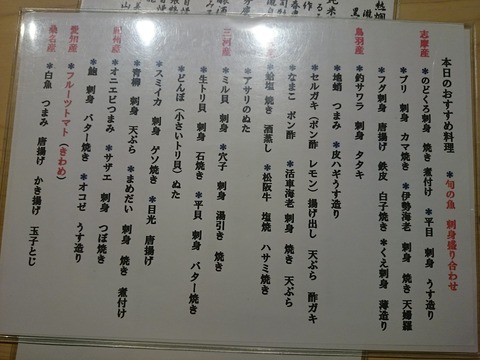 本日のおすすめ料理 *旬の魚 刺身盛り合わせ
志摩産
*のどくろ 刺身 焼き 煮付け *平目 刺身 うす造り
*ブリ 刺身 カマ焼き *伊勢海老 刺身 焼き 天婦羅
*フグ 刺身 唐揚げ 鉄皮 白子焼き *くえ 刺身 薄造り
鳥羽産
*釣サワラ 刺身 タタキ
*地蛸 つまみ *皮ハギ うす造り
*セルガキ(ポン酢 レモン) 揚げ出し 天ぷら 酢ガキ
*なまこ ポン酢 *活車海老 刺身 焼き 天ぷら
*蛤 塩焼き 酒蒸し *松阪牛 塩焼 ハサミ焼き
*アサリのぬた
三河産
*ミル貝 刺身 *穴子 刺身 湯引き 焼き
*生トリ貝 刺身 石焼き *平貝 刺身 バター焼き
*どんぼ(小さいトリ貝)ぬた
*スミイカ 刺身 ゲソ焼き *目光 唐揚げ
*青柳 刺身 天ぷら *まめだい 刺身 焼き 煮付け
*オニエビつまみ *サザエ 刺身 つぼ焼き
*鮑 刺身 バター焼き *オコゼ うす造り
愛州産
*フルーツトマト(きわめ)
桑名産
*白魚 つまみ 唐揚げ かき揚げ 玉子とじ